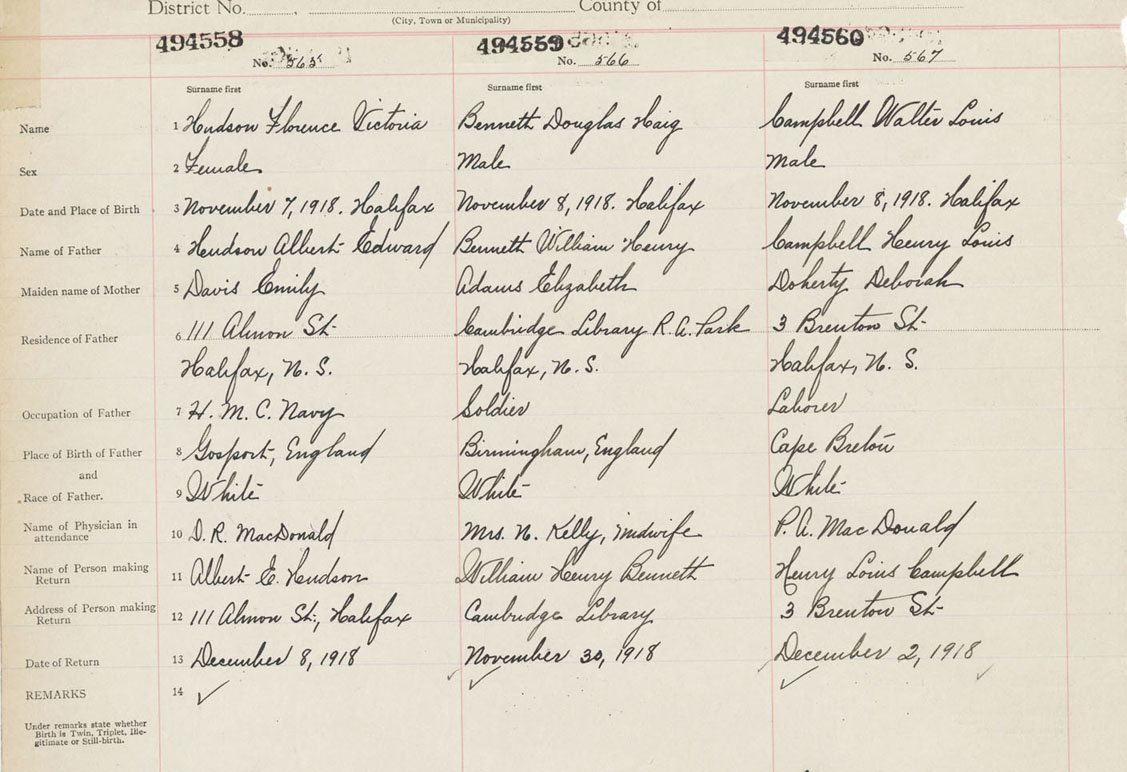 District No. County of
(City, Town or Municipality)
494558 494559 494560
No. 565 No. 566 No. 567
Surname first Surname first Surname first
Name 1 Hudson Florence Victoria Bennett Douglas Haig Campbell Walter Louis
Sex 2 Female Male Male
Date and Place of Birth 3 November 7, 1918. Halifax November 8, 1918. Halifax November 8, 1918. Halifax
Name of Father 4 Hudson Albert Edward Bennett William Henry Campbell Henry Louis
Maiden name of Mother 5 Davis Emily Adams Elizabeth Doherty Deborah
Residence of Father 6 111 Almon St. Cambridge Library R.A. Park 3 Brenton St.
Halifax, N.S. Halifax, N.S. Halifax, N.S.
Occupation of Father 7 H.M.C. Navy Soldier Laborer
Place of Birth of Father 8 Gosport, England Birmingham, England Cape Breton
and
Race of Father. 9 White White White
Name of Physician in attendance 10 D.R. MacDonald Mrs. N. Kelly, Midwife P.A. MacDonald
Name of Person making Return 11 Albert E. Hudson William Henry Bennett Henry Louis Campbell
Address of Person making Return 12 111 Almon St., Halifax Cambridge Library 3 Brenton St.
Date of Return 13 December 8, 1918 November 30, 1918 December 2, 1918
REMARKS 14 ✓ ✓ ✓
Under remarks state whether
Birth is Twin, Triplet, Ille-
gitimate or Still-birth.